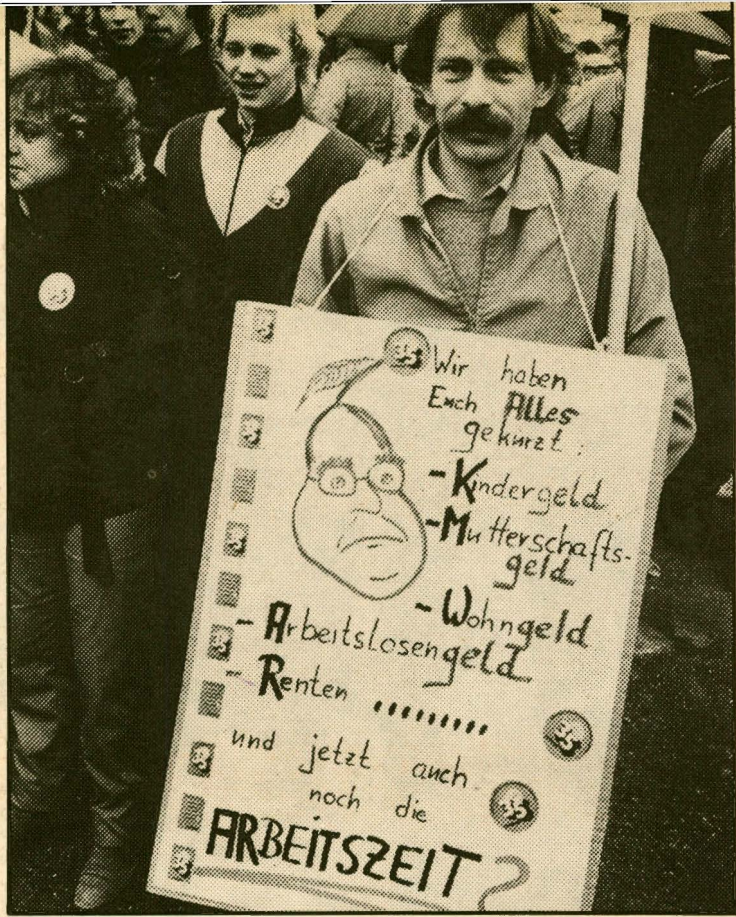 Wir haben
Euch Alles
gekürzt:
- Kindergeld
- Mutterschafts-
geld
- Wohngeld
- Arbeitslosengeld
- Renten .........
und jetzt auch
noch die
ARBEITSZEIT?
35
35
35